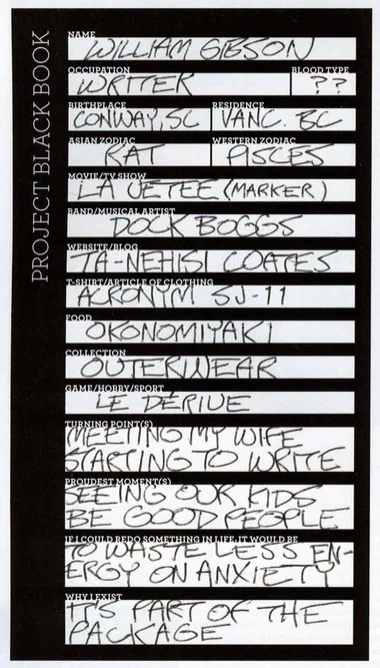 PROJECT BLACK BOOK
NAME
WILLIAM GIBSON
OCCUPATION
WRITER
BLOOD TYPE
??
BIRTHPLACE
CONWAY, SC
RESIDENCE
VANC. BC
ASIAN ZODIAC
RAT
WESTERN ZODIAC
PISCES
MOVIE/TV SHOW
LA JETEE (MARKER)
BAND/MUSICAL ARTIST
DOCK BOGGS
WEBSITE/BLOG
TA-NEHISI COATES
T-SHIRT/ARTICLE OF CLOTHING
ACRONYM SJ-11
FOOD
OKONOMIYAKI
COLLECTION
OUTERWEAR
GAME/HOBBY/SPORT
LE DÉRIVE
TURNING POINT(S)
MEETING MY WIFE
STARTING TO WRITE
PROUDEST MOMENT(S)
SEEING OUR KIDS
BE GOOD PEOPLE
IF I COULD REDO SOMETHING IN LIFE, IT WOULD BE
TO WASTE LESS EN-
ERGY ON ANXIETY
WHY I EXIST
IT'S PART OF THE
PACKAGE